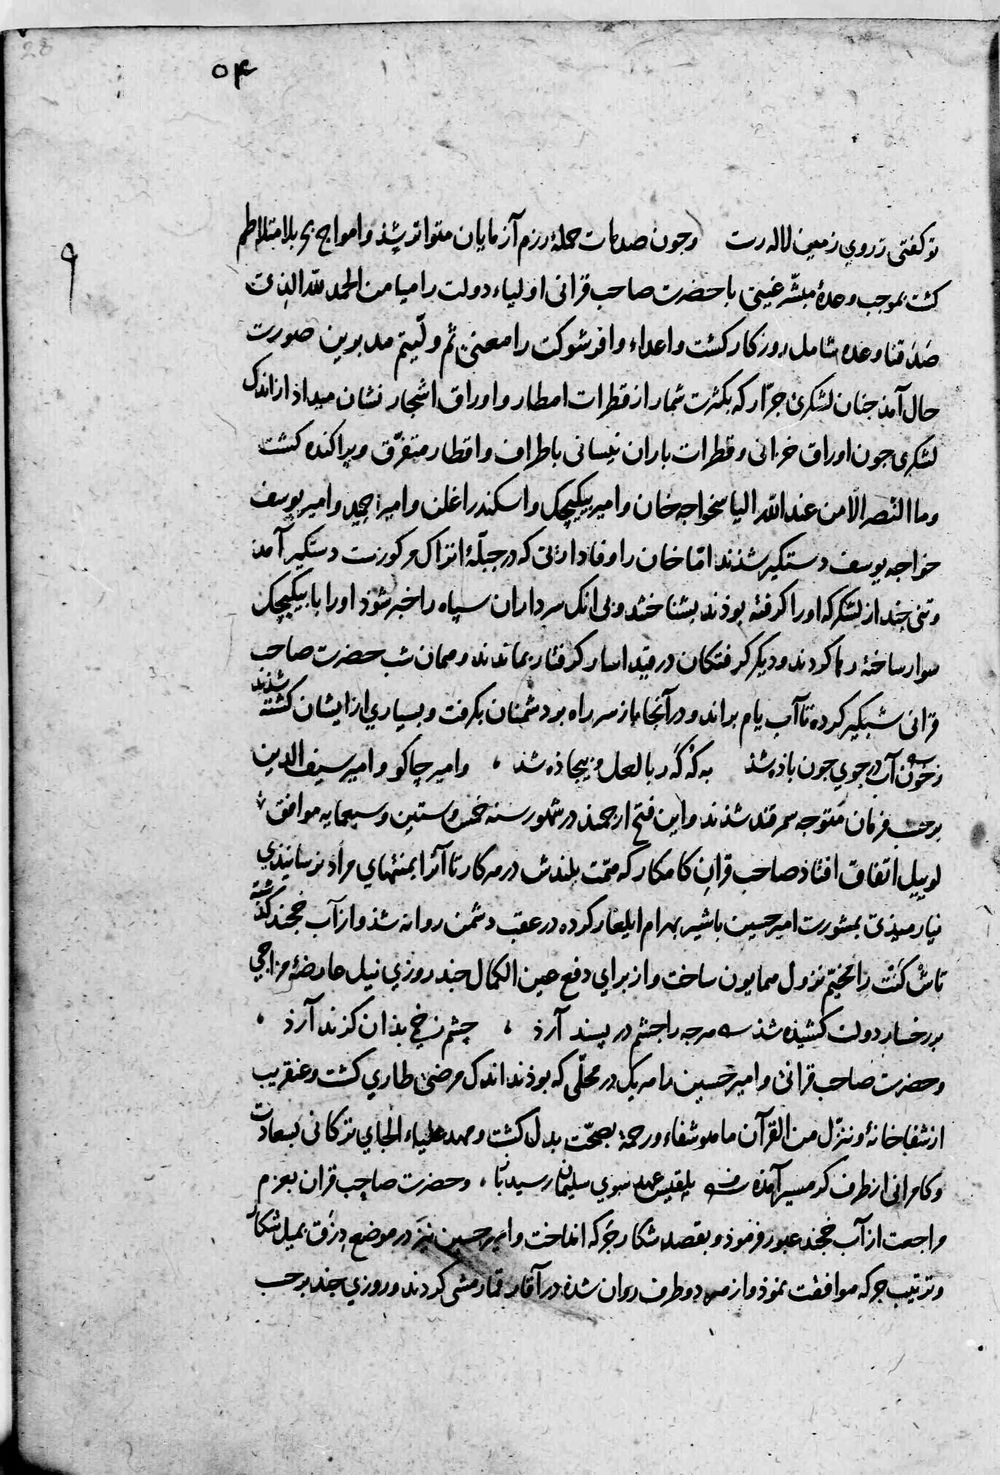 28
۵۴
۹
تو کفتی ز روی زمین لاله رست وجون صدمات حملۀ رزم آزمایان متواتر شذ و امواج بحر بلا متلاطم
کشت بموجب وعدۀ مبشّر غیبی با حضرت صاحب قرانی اولیاء دولت را میامن الحمد لله الذی
صَدَقنا وعده شامل روزکار کشت و اعداء وافر شوکت را معنی ثم ولّیتم مدبرین صورت
حال آمذ جنان لشکری جرّار که بکثرت شمار از قطرات امطار و اوراق اشجار نشان میداذ از اندک
لشکری جون اوراق خزانی و قطرات باران نیسانی باطراف و اقطار متفرّق و براکنده کشت
وما النّصر الّا من عند الله الیاسخواجه خان و امیر بیکیجک و اسکندر اغلن و امیر حمید و امیر یوسف
خواجه یوسف دستکیر شذند امّا خان را وفاداریی که در جبلّۀ اتراک مرکوزست دستکیر آمذ
وتنی جند از لشکر که او را کرفته بوذند بشناختند و بی انک سرداران سپاه را خبر شوذ او را با بیکیجک
سوار ساخته رها کردند و دیکر کرفتکان در قید اسار کرفتار بماندند و همان شب حضرت صاحب
قرانی شبکیر کرده تا آب یام براند و در آنجا باز سر راه بر دشمنان بکرفت و بسیاری از ایشان کشته شذند
ز خون آب در جوی جون باذه شذ به که کهربا لعل و بیجاذه شد ، وامیر جاکو و امیر سیف الدین
برحسب فرمان متوجه سمرقند شذند و این فتح ارجمند در شهور سنه خمس و ستین و سبعمایه موافق
لوییل اتفاق افتاذ صاحب قران کامکار که همّت بلندش در هر کار تا آنرا بمنتهای مراد نرسانیذی
نیارمیذی بمشورت امیر حسین با شیر بهرام ایلغار کرده در عقب دشمن روانه شذ و از آب خجند کذشته
تاش کنت را مخیّم نزول همایون ساخت و از برای دفع عین الکمال جند روزی نیل عارضۀ مزاجی
بر رخسار دولت کشیذه شذ هرجه را جشم در پسند آرذ ، جشم زخمی بذان کزند آرذ ،
و حضرت صاحب قرانی و امیر حسین را هر یک در محلّی که بوذند اندک مرضی طاری کشت و عنقریب
از شفاخانۀ وننزّل من القرآن ما هو شفاء ورحمة بصحّت بدل کشت و مهد علیاء الجای ترکانی بسعادت
و کامرانی از طرف کرمسیر آمذه بلقیس عهد سوی سلیمان رسید باز ، و حضرت صاحب قران بعزم
مراجعت از آب خجند عبور فرموذ و بقصد شکار جرکه انداخت و امیر حسین نیز در موضع دزق بمیل شکار
و ترتیب جرکه موافقت نموذ و از هر دو طرف روان شذه در آقار قمارمشی کردند و روزی جند برحسب